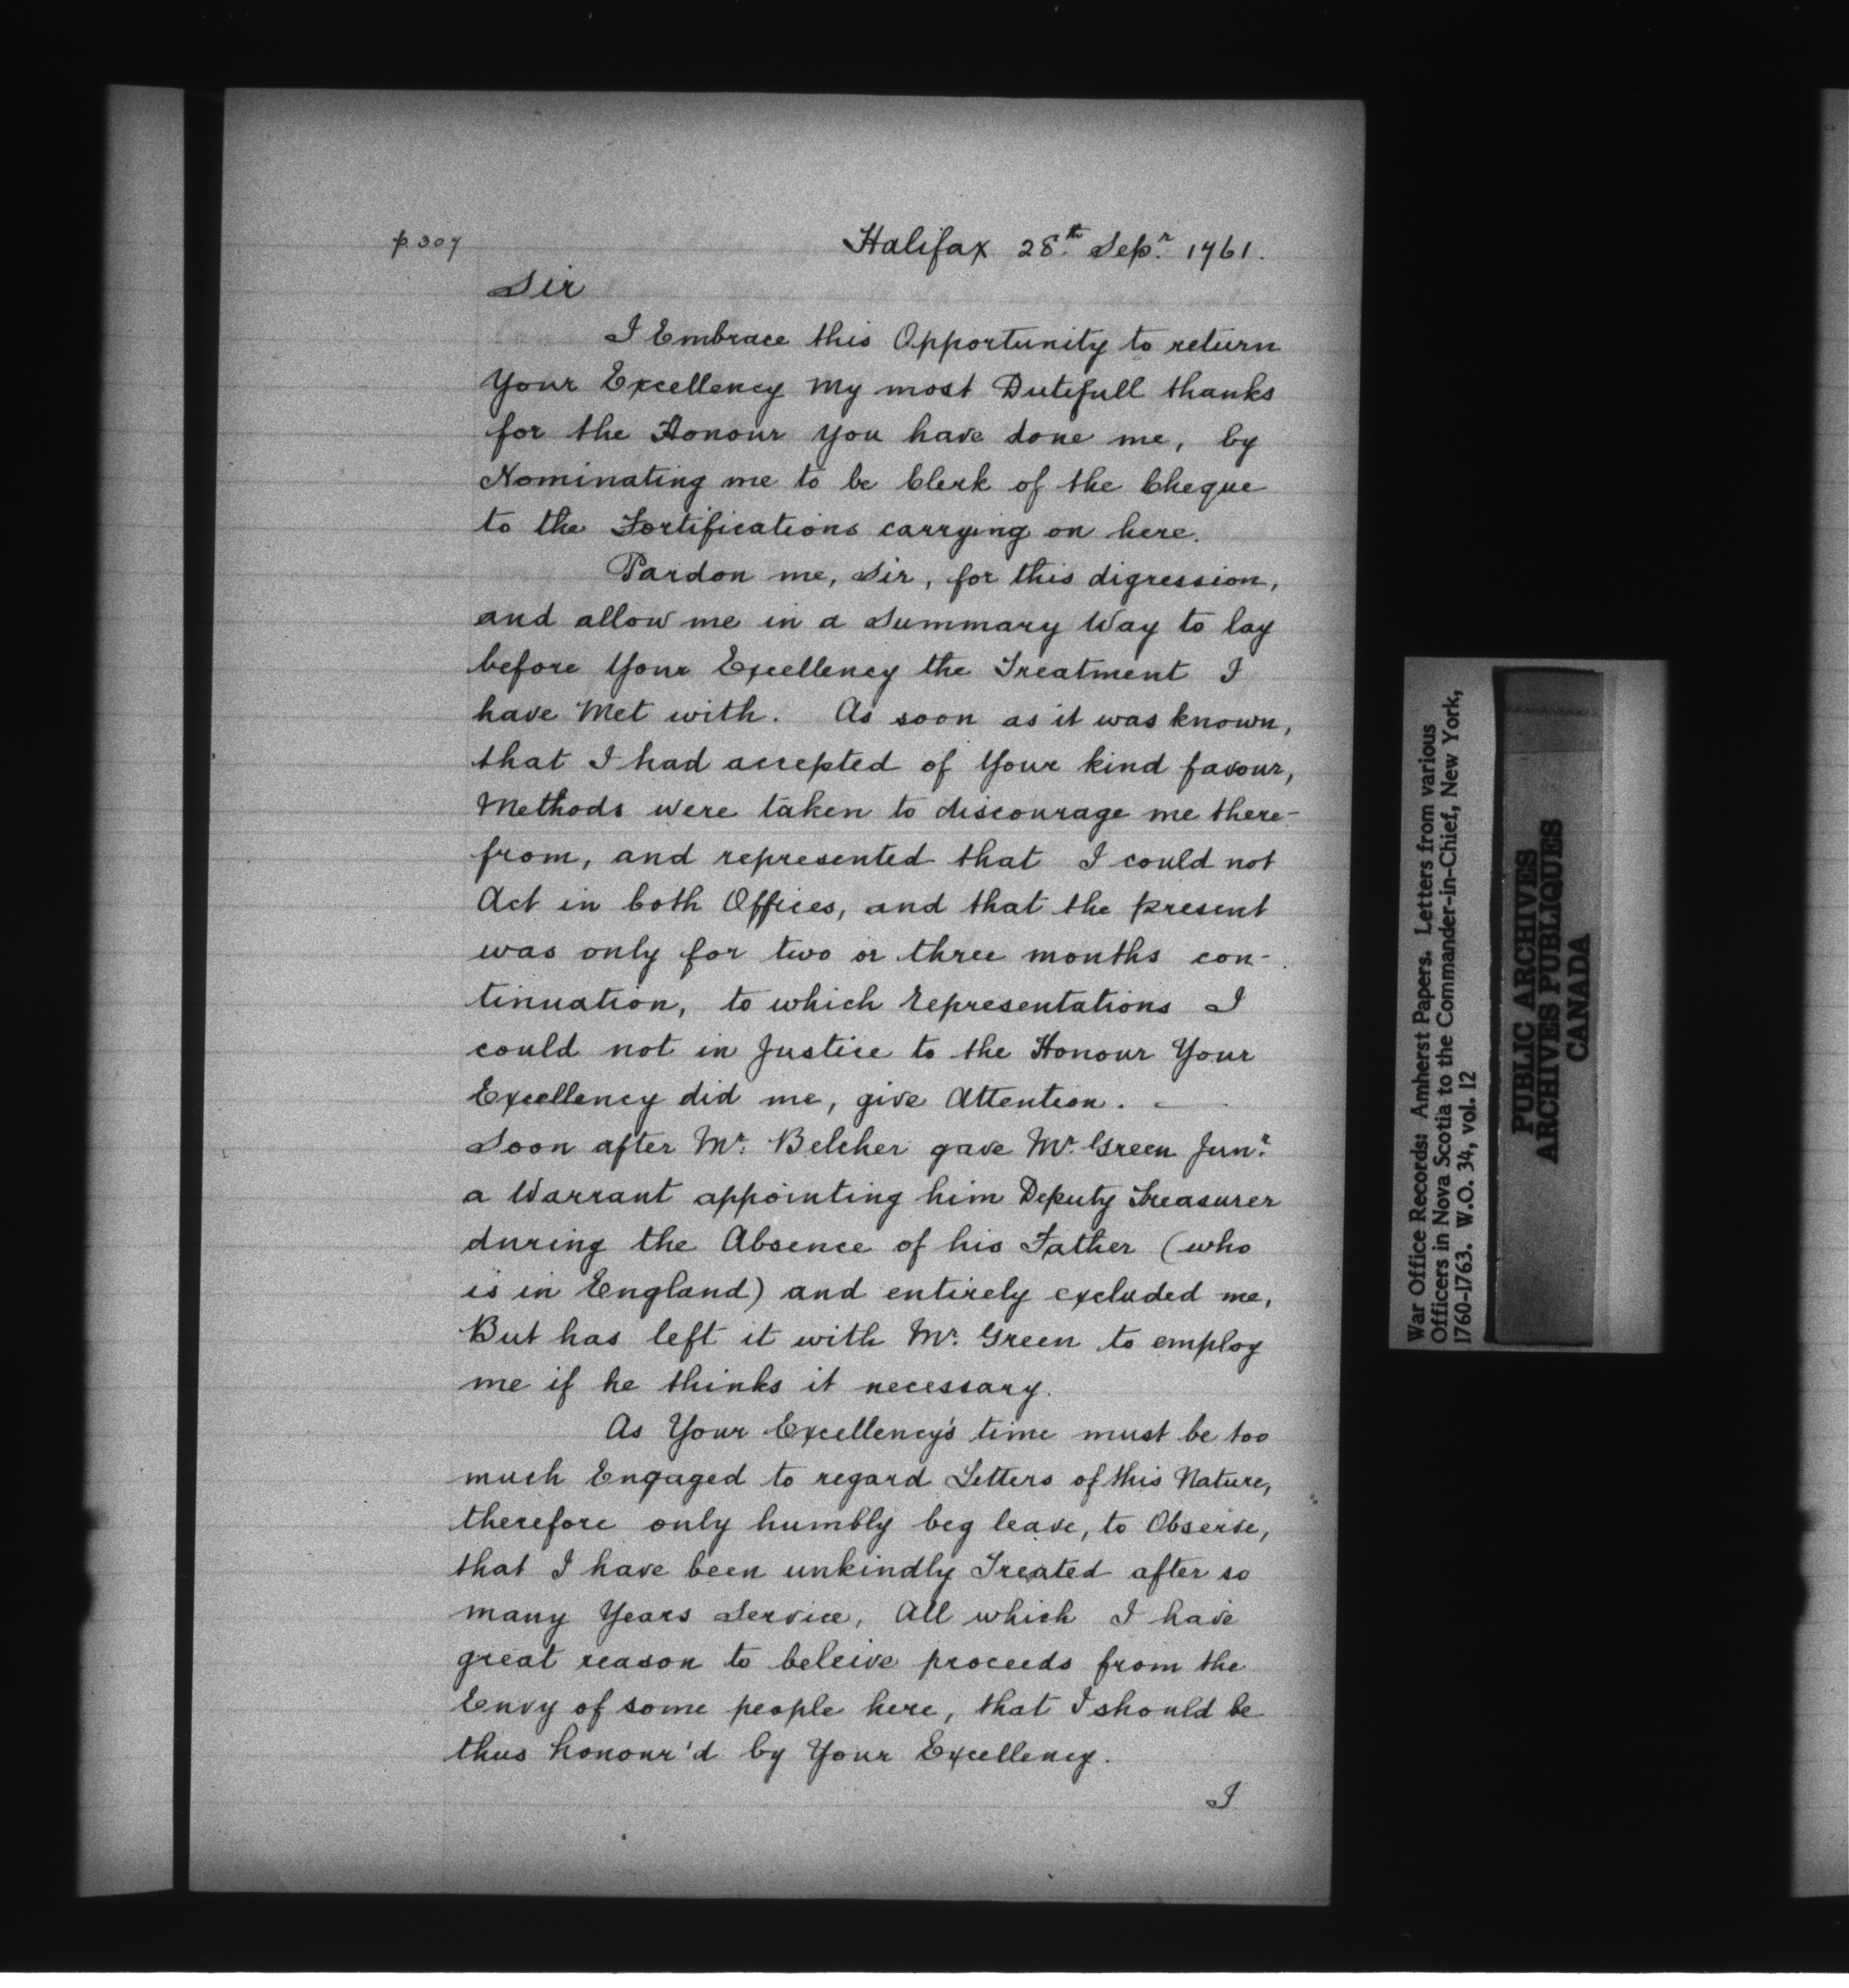 p. 307
Halifax 28th Sepr 1761.
Sir
I Embrace this Opportunity to return
Your Excellency My most Dutifull thanks
for the Honour You have done me, by
Nominating me to be Clerk of the Cheque
to the Fortifications carrying on here.
Pardon me, Sir, for this digression,
and allow me in a Summary Way to lay
before Your Excellency the Treatment I
have Met with. As soon as it was known,
that I had accepted of Your kind favour,
Methods were taken to discourage me there-
from, and represented that I could not
Act in both Offices, and that the present
was only for two or three months con-
tinuation, to which representations I
could not in Justice to the Honour Your
Excellency did me, give Attention. —
Soon after Mr. Belcher gave Mr. Green Junr.
a Warrant appointing him Deputy Treasurer
during the Absence of his Father (who
is in England) and entirely excluded me,
But has left it with Mr. Green to employ
me if he thinks it necessary.
As Your Excellency's time must be too
much Engaged to regard Letters of this Nature,
therefore only humbly beg leave, to Observe,
that I have been unkindly Treated after so
many Years Service, All which I have
great reason to beleive proceeds from the
Envy of some people here, that I should be
thus honour'd by Your Excellency.
I
War Office Records: Amherst Papers. Letters from various
Officers in Nova Scotia to the Commander-in-Chief, New York,
1760-1763. W.O. 34, vol. 12
PUBLIC ARCHIVES
ARCHIVES PUBLIQUES
CANADA